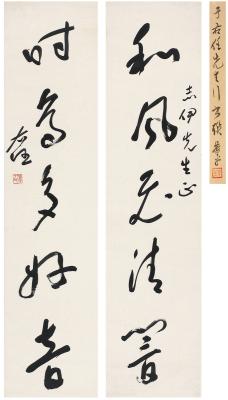 和风无清响
志伊先生正
时鸟多好音
右任
于右任先生行书联